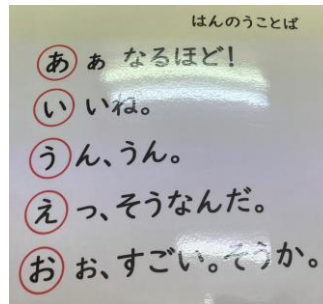 はんのうことば
あぁ なるほど!
いいね。
うん、うん。
えっ、そうなんだ。
おぉ、すごい。そうか。